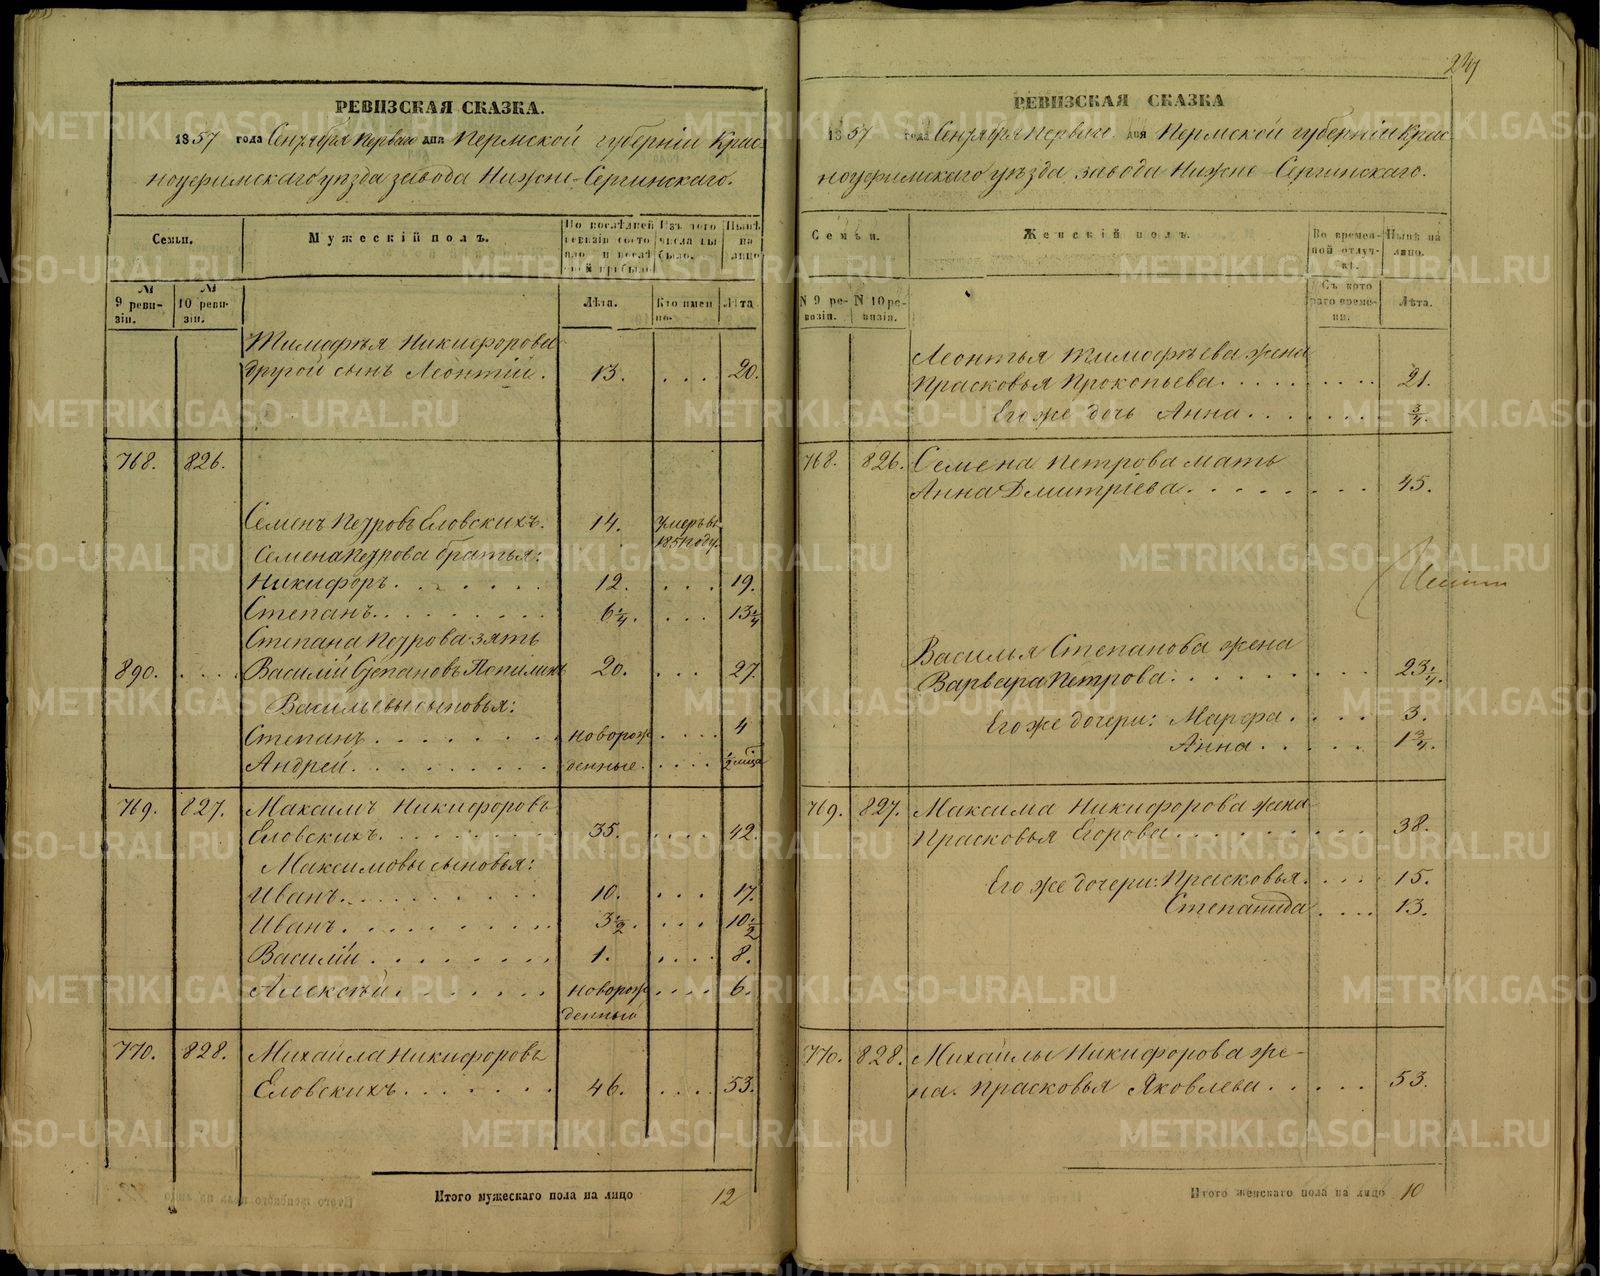 РЕВИЗСКАЯ СКАЗКА.
1857 года Сентября Перваго дня Пермской губерніи Крас-
ноуфимскаго уѣзда завода Нижне-Сергинскаго.
Семьи.
Мужескій полъ.
По послѣдней ревизіи состояло и послѣ той прибыло
Изъ того числа выбыло.
Нынѣ на лицо
№ 9 ревизіи.
№ 10 ревизіи.
Лѣта.
Кто имен но.
Лѣта
Тимофѣя Никифорова
другой сынъ Леонтій. 13. . . . 20.
768. 826.
Семенъ Петровъ Еловскихъ. 14. умеръ въ
1851 году.
Семена Петрова братья:
Никифоръ. 12. . . . 19.
Степанъ. 6 1/4. . . . 13 1/4
Степана Петрова зять
890. . . . Василій Степановъ 20. . . . 27.
Васильевы сыновья:
Степанъ новорож- . . . . 4
Андрей. денные. . . . . 1/2 мѣсяца
769. 827. Максимъ Никифоровъ
Еловскихъ. 35. . . . . 42.
Максимовы сыновья:
Иванъ. 10. . . . 17.
Иванъ. 3 1/2. . . . 10 1/2
Василій 1. . . . . 8.
Алексѣй. новорож- . . . . 6.
денный
770. 828. Михайла Никифоровъ
Еловскихъ 46. . . . . 53.
Итого мужескаго пола на лицо 12
РЕВИЗСКАЯ СКАЗКА
1857 года Сентября Перваго дня Пермской губерніи Крас-
ноуфимскаго уѣзда завода Нижне-Сергинскаго.
Семьи.
Женскій полъ.
Во времен-ной отлуч-кѣ.
Нынѣ на лицо.
N 9 ре-визіи.
N 10 ре-визіи.
Съ кото раго време-ни.
Лѣта.
Леонтья Тимофѣева жена
Прасковья Прокопьева. 21.
Его же дочь Анна. 3/4.
768. 826. Семена Петрова мать
Анна Дмитріева. 45.
Василья Степанова жена
Варвара Петрова. 23 1/4.
Его же дочери: Марфа. 3.
Анна. 1 3/4.
769. 827. Максима Никифорова жена
Прасковья Егорова 38.
Его же дочери: Прасковья. 15.
Степанида 13.
770. 828. Михайлы Никифорова же-
на Прасковья Яковлева 53.
Итого женскаго пола на лицо 10
METRIKI.GASO-URAL.RU